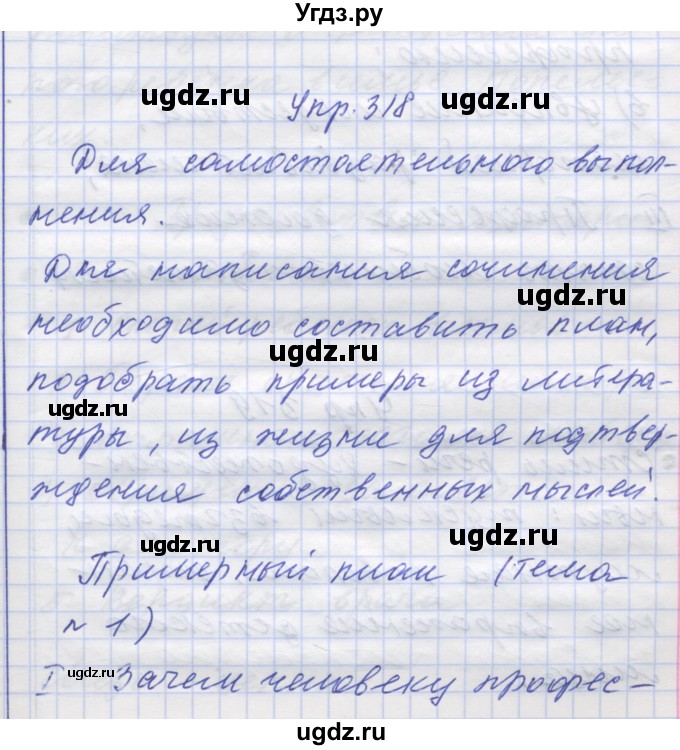 Угдз.ру
ugdz.ru
Упр. 318
ugdz.ru
Для самостоятельного выпол-
нения.
ugdz.ru
Для написания сочинения
ugdz.ru
необходимо составить план,
ugdz.ru
подобрать примеры из литера-
ugdz.ru
туры, из жизни для подтвер-
ждения собственных мыслей.
ugdz.ru
ugdz.ru
Примерный план (тема
№ 1)
ugdz.ru
I Зачем человеку професс-
ugdz.ru
ugdz.ru